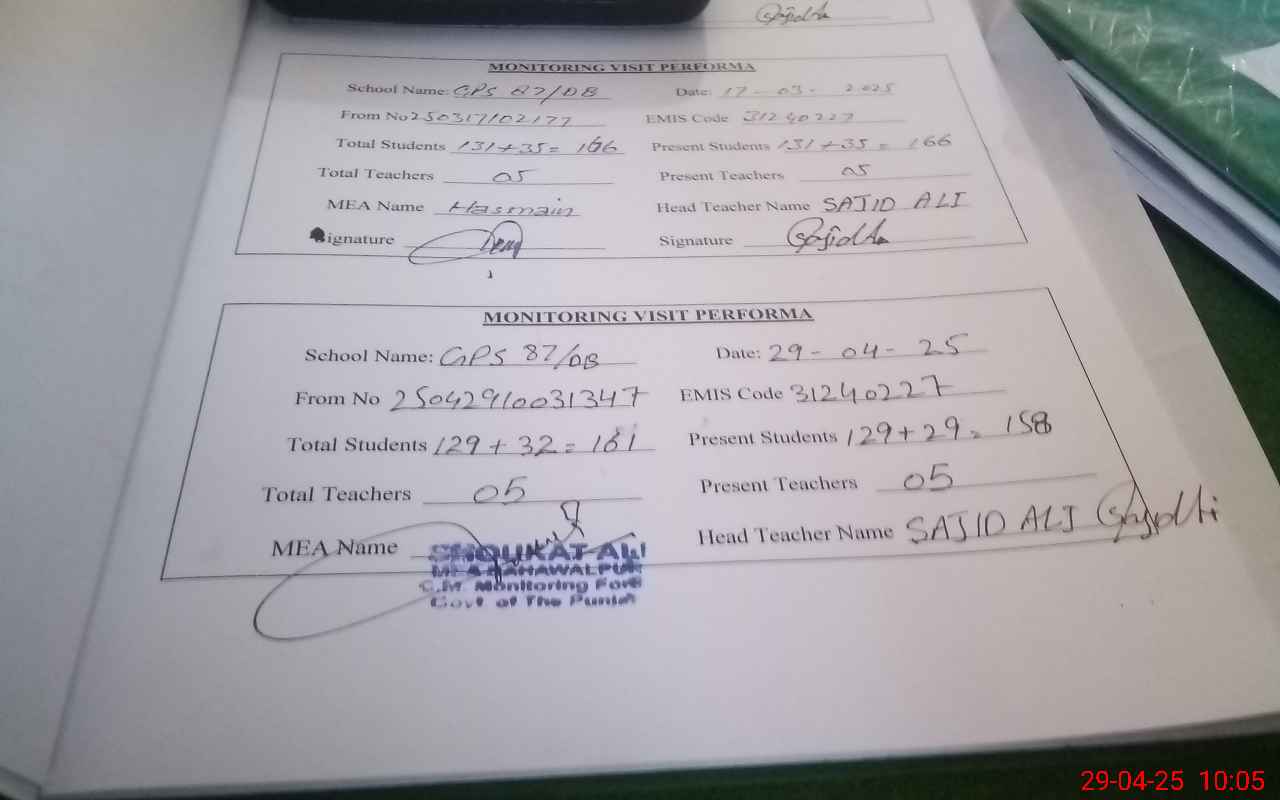 MONITORING VISIT PERFORMA
School Name: GPS 87/DB Date: 17-03-2025
From No 250317102177 EMIS Code 31240227
Total Students 131+35=166 Present Students 131+35=166
Total Teachers 05 Present Teachers 05
MEA Name Hasnain Head Teacher Name SAJID ALI
Signature Signature Sajid Ali
MONITORING VISIT PERFORMA
School Name: GPS 87/DB Date: 29-04-25
From No 25042910031347 EMIS Code 31240227
Total Students 129+32=161 Present Students 129+29=158
Total Teachers 05 Present Teachers 05
MEA Name Head Teacher Name SAJID ALI Sajid Ali
SHOUKAT ALI
MEA BAHAWALPUR
C.M. Monitoring Force
Govt of The Punjab
29-04-25 10:05